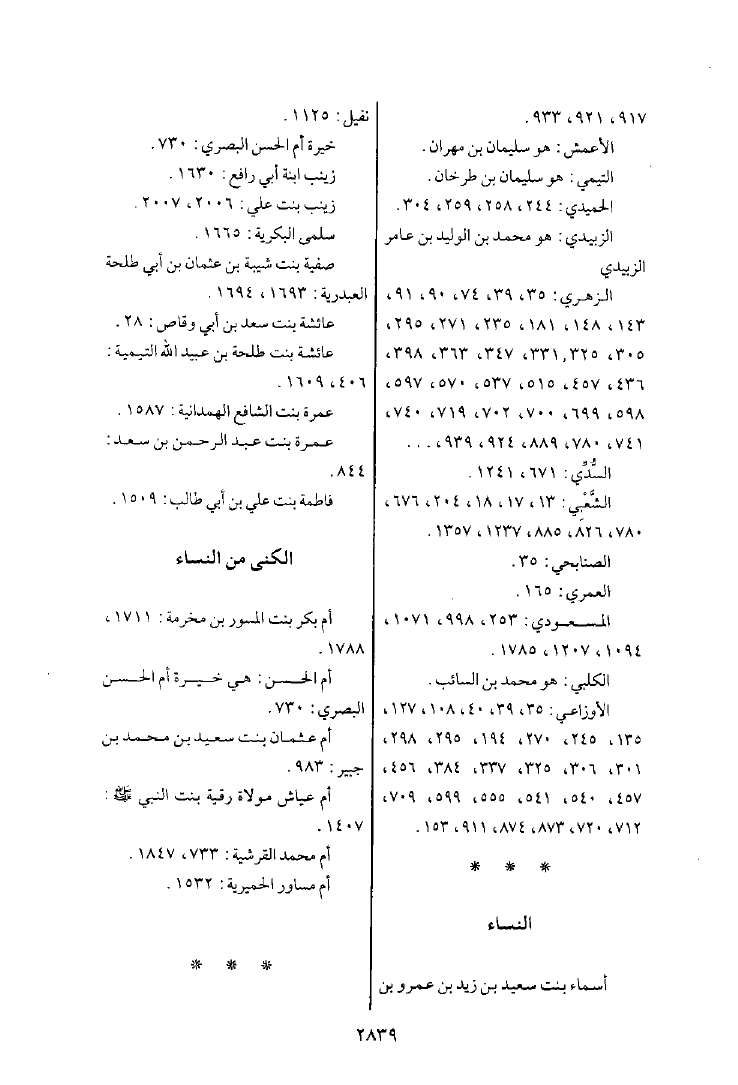 ٩١٧، ٩٢١، ٩٣٣.
الأعمش: هو سليمان بن مهران.
التيمي: هو سليمان بن طرخان.
الحميدي: ٢٤٤، ٢٥٨، ٢٥٩، ٣٠٤.
الزبيدي: هو محمد بن الوليد بن عامر
الزبيدي
الزهري: ٣٥، ٣٩، ٧٤، ٩٠، ٩١،
١٤٣، ١٤٨، ١٨١، ٢٣٥، ٢٧١، ٢٩٥،
٣٠٥، ٣٢٥, ٣٣١، ٣٤٧، ٣٦٣، ٣٩٨،
٤٣٦، ٤٥٧، ٥١٥، ٥٣٧، ٥٧٠، ٥٩٧،
٥٩٨، ٦٩٩، ٧٠٠، ٧٠٢، ٧١٩، ٧٤٠،
٧٤١، ٧٨٠، ٨٨٩، ٩٢٤، ٩٣٩، ...
السُّدِّي: ٦٧١، ١٢٤١.
الشَّعْبِي: ١٣، ١٧، ١٨، ٢٠٤، ٦٧٦،
٧٨٠، ٨٢٦، ٨٨٥، ١٢٣٧، ١٣٥٧.
الصنابحي: ٣٥.
العمري: ١٦٥.
المسعودي: ٢٥٣، ٩٩٨، ١٠٧١،
١٠٩٤، ١٢٠٧، ١٧٨٥.
الكلبي: هو محمد بن السائب.
الأوزاعي: ٣٥، ٣٩، ٤٠، ١٠٨، ١٢٧،
١٣٥، ٢٤٥، ٢٧٠، ١٩٤، ٢٩٥، ٢٩٨،
٣٠١، ٣٠٦، ٣٢٥، ٣٣٧، ٣٨٤، ٤٥٦،
٤٥٧، ٥٤٠، ٥٤١، ٥٥٥، ٥٩٩، ٧٠٩،
٧١٢، ٧٢٠، ٨٧٣، ٨٧٤، ٩١١، ١٥٣.
* * *
النساء
أسماء بنت سعيد بن زيد بن عمرو بن
نفيل: ١١٢٥.
خيرة أم الحسن البصري: ٧٣٠.
زينب ابنة أبي رافع: ١٦٣٠.
زينب بنت علي: ٢٠٠٦، ٢٠٠٧.
سلمى البكرية: ١٦٦٥.
صفية بنت شيبة بن عثمان بن أبي طلحة
العبدرية: ١٦٩٣، ١٦٩٤.
عائشة بنت سعد بن أبي وقاص: ٢٨.
عائشة بنت طلحة بن عبيد الله التيمية:
٤٠٦، ١٦٠٩.
عمرة بنت الشافع الهمدانية: ١٥٨٧.
عمرة بنت عبد الرحمن بن سعد:
٨٤٤.
فاطمة بنت علي بن أبي طالب: ١٥٠٩.
الكنى من النساء
أم بكر بنت المسور بن مخرمة: ١٧١١،
١٧٨٨.
أم الحسن: هي خيرة أم الحسن
البصري: ٧٣٠.
أم عثمان بنت سعيد بن محمد بن
جبير: ٩٨٣.
أم عياش مولاة رقية بنت النبي ﷺ:
١٤٠٧.
أم محمد القرشية: ٧٣٣، ١٨٤٧.
أم مساور الحميرية: ١٥٣٢.
* * *
٢٨٣٩